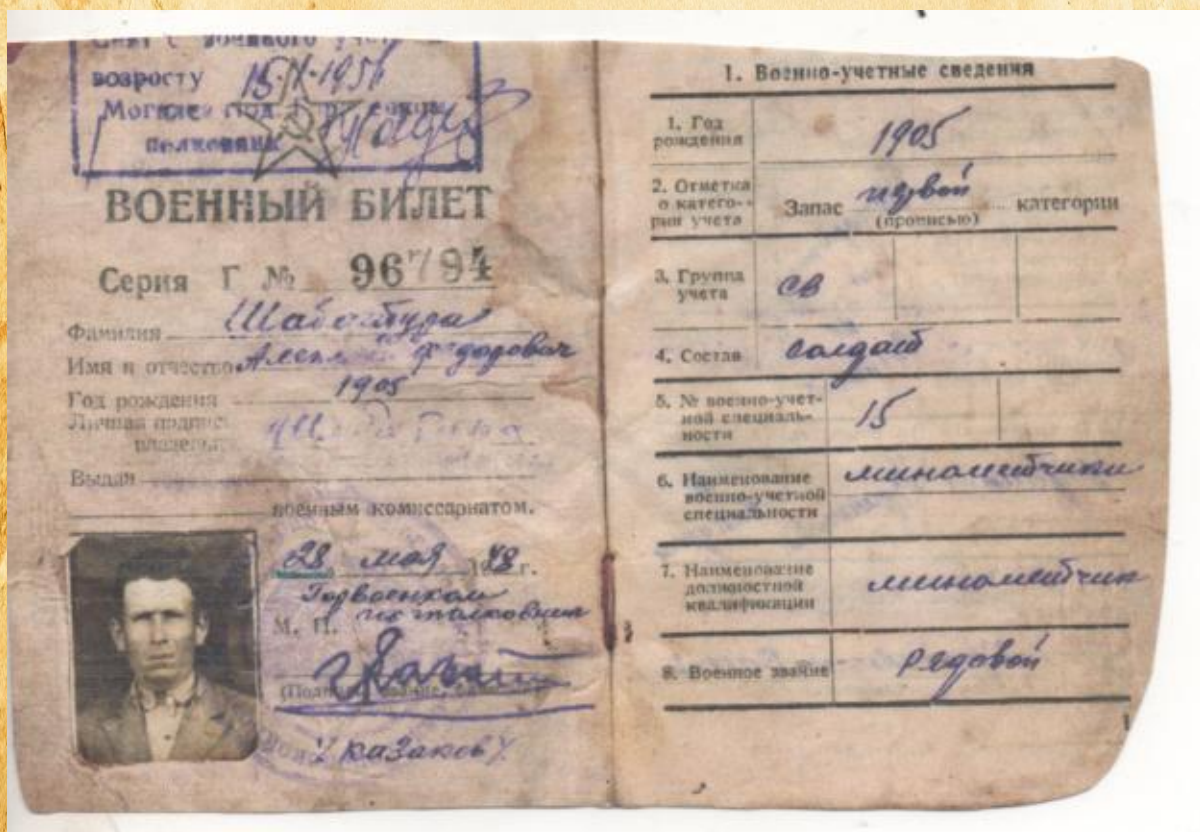 возрасту 15.
полковник
ВОЕННЫЙ БИЛЕТ
Серия Г № 96794
Фамилия Шабатура
Имя и отчество Федорович
Год рождения 1905
Личная подпись
владельца
Выдан
военным комиссариатом.
28 мая 1948 г.
Горвоенком
М. П. полковник
/Казаков/
1. Военно-учетные сведения
1. Год
рождения
1905
2. Отметка
о катего-
рии учета
Запас первой категории
(прописью)
3. Группа
учета
СВ
4. Состав солдат
5. № военно-учет-
ной специаль-
ности
15
6. Наименование
военно-учетной
специальности
минометчики
7. Наименование
должностной
квалификации
минометчик
8. Военное звание рядовой
1